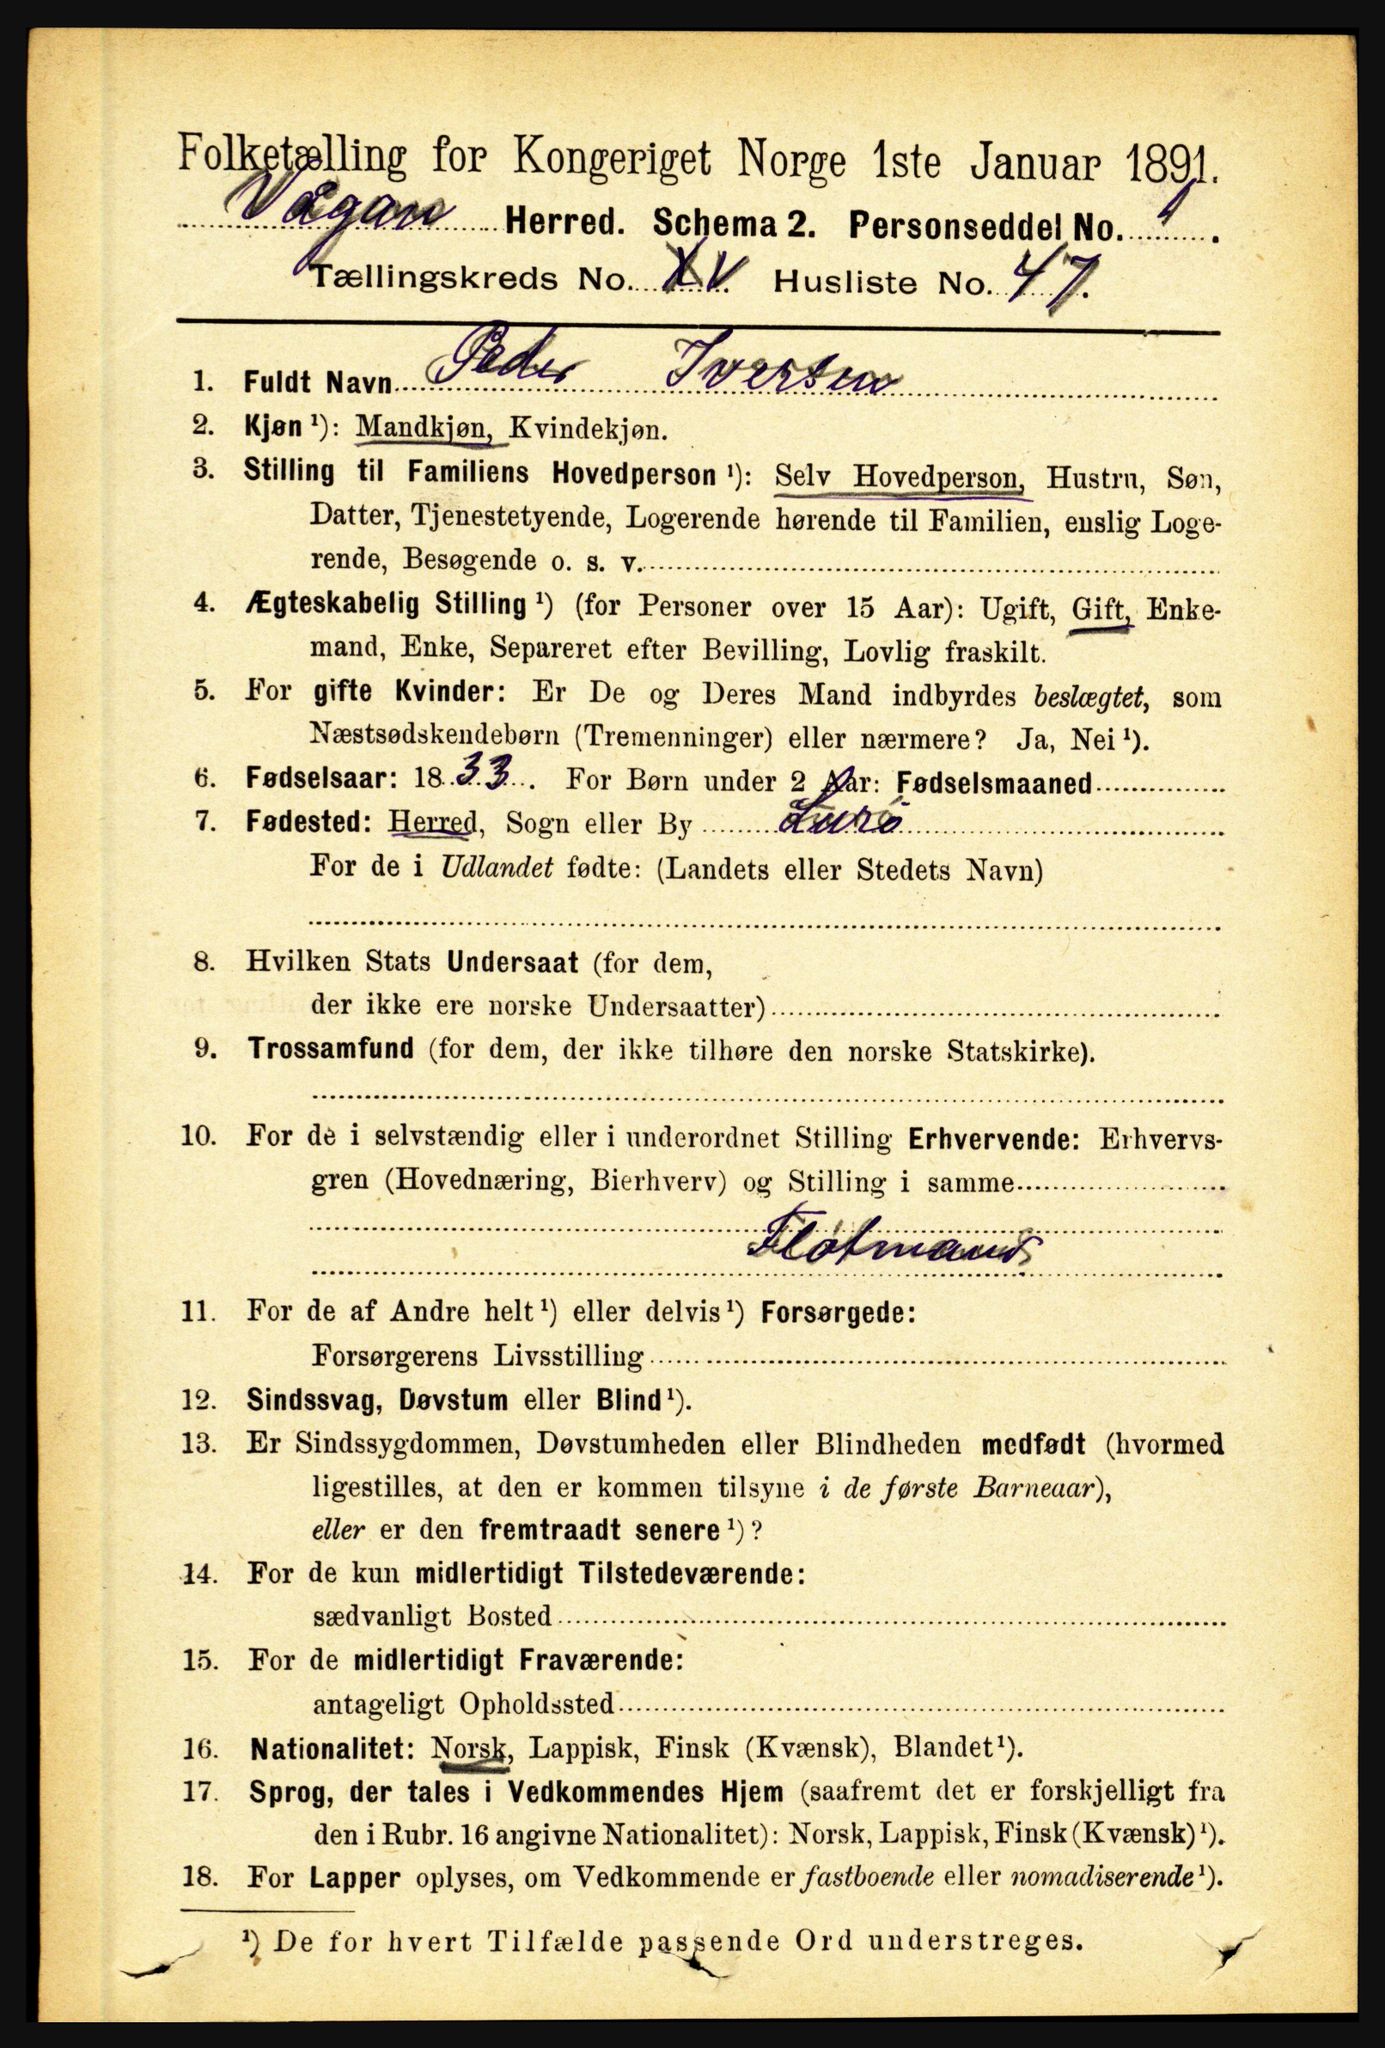 Folketælling for Kongeriget Norge 1ste Januar 1891.
Vågan Herred. Schema 2. Personseddel No. 1.
Tællingskreds No. XV Husliste No. 47.
1. Fuldt Navn Peder Iversen
2. Kjøn ¹): Mandkjøn, Kvindekjøn.
3. Stilling til Familiens Hovedperson ¹): Selv Hovedperson, Hustru, Søn,
Datter, Tjenestetyende, Logerende hørende til Familien, enslig Loge-
rende, Besøgende o. s. v.
4. Ægteskabelig Stilling ¹) (for Personer over 15 Aar): Ugift, Gift, Enke-
mand, Enke, Separeret efter Bevilling, Lovlig fraskilt.
5. For gifte Kvinder: Er De og Deres Mand indbyrdes beslægtet, som
Næstsødskendebørn (Tremenninger) eller nærmere? Ja, Nei ¹).
6. Fødselsaar: 1833. For Børn under 2 Aar: Fødselsmaaned
7. Fødested: Herred, Sogn eller By Lurö
For de i Udlandet fødte: (Landets eller Stedets Navn)
8. Hvilken Stats Undersaat (for dem,
der ikke ere norske Undersaatter)
9. Trossamfund (for dem, der ikke tilhøre den norske Statskirke).
10. For de i selvstændig eller i underordnet Stilling Erhvervende: Erhvervs-
gren (Hovednæring, Bierhverv) og Stilling i samme
Flötmand
11. For de af Andre helt ¹) eller delvis ¹) Forsørgede:
Forsørgerens Livsstilling
12. Sindssvag, Døvstum eller Blind ¹).
13. Er Sindssygdommen, Døvstumheden eller Blindheden medfødt (hvormed
ligestilles, at den er kommen tilsyne i de første Barneaar),
eller er den fremtraadt senere ¹)?
14. For de kun midlertidigt Tilstedeværende:
sædvanligt Bosted
15. For de midlertidigt Fraværende:
antageligt Opholdssted
16. Nationalitet: Norsk, Lappisk, Finsk (Kvænsk), Blandet ¹).
17. Sprog, der tales i Vedkommendes Hjem (saafremt det er forskjelligt fra
den i Rubr. 16 angivne Nationalitet): Norsk, Lappisk, Finsk (Kvænsk) ¹).
18. For Lapper oplyses, om Vedkommende er fastboende eller nomadiserende ¹).
¹) De for hvert Tilfælde passende Ord understreges.